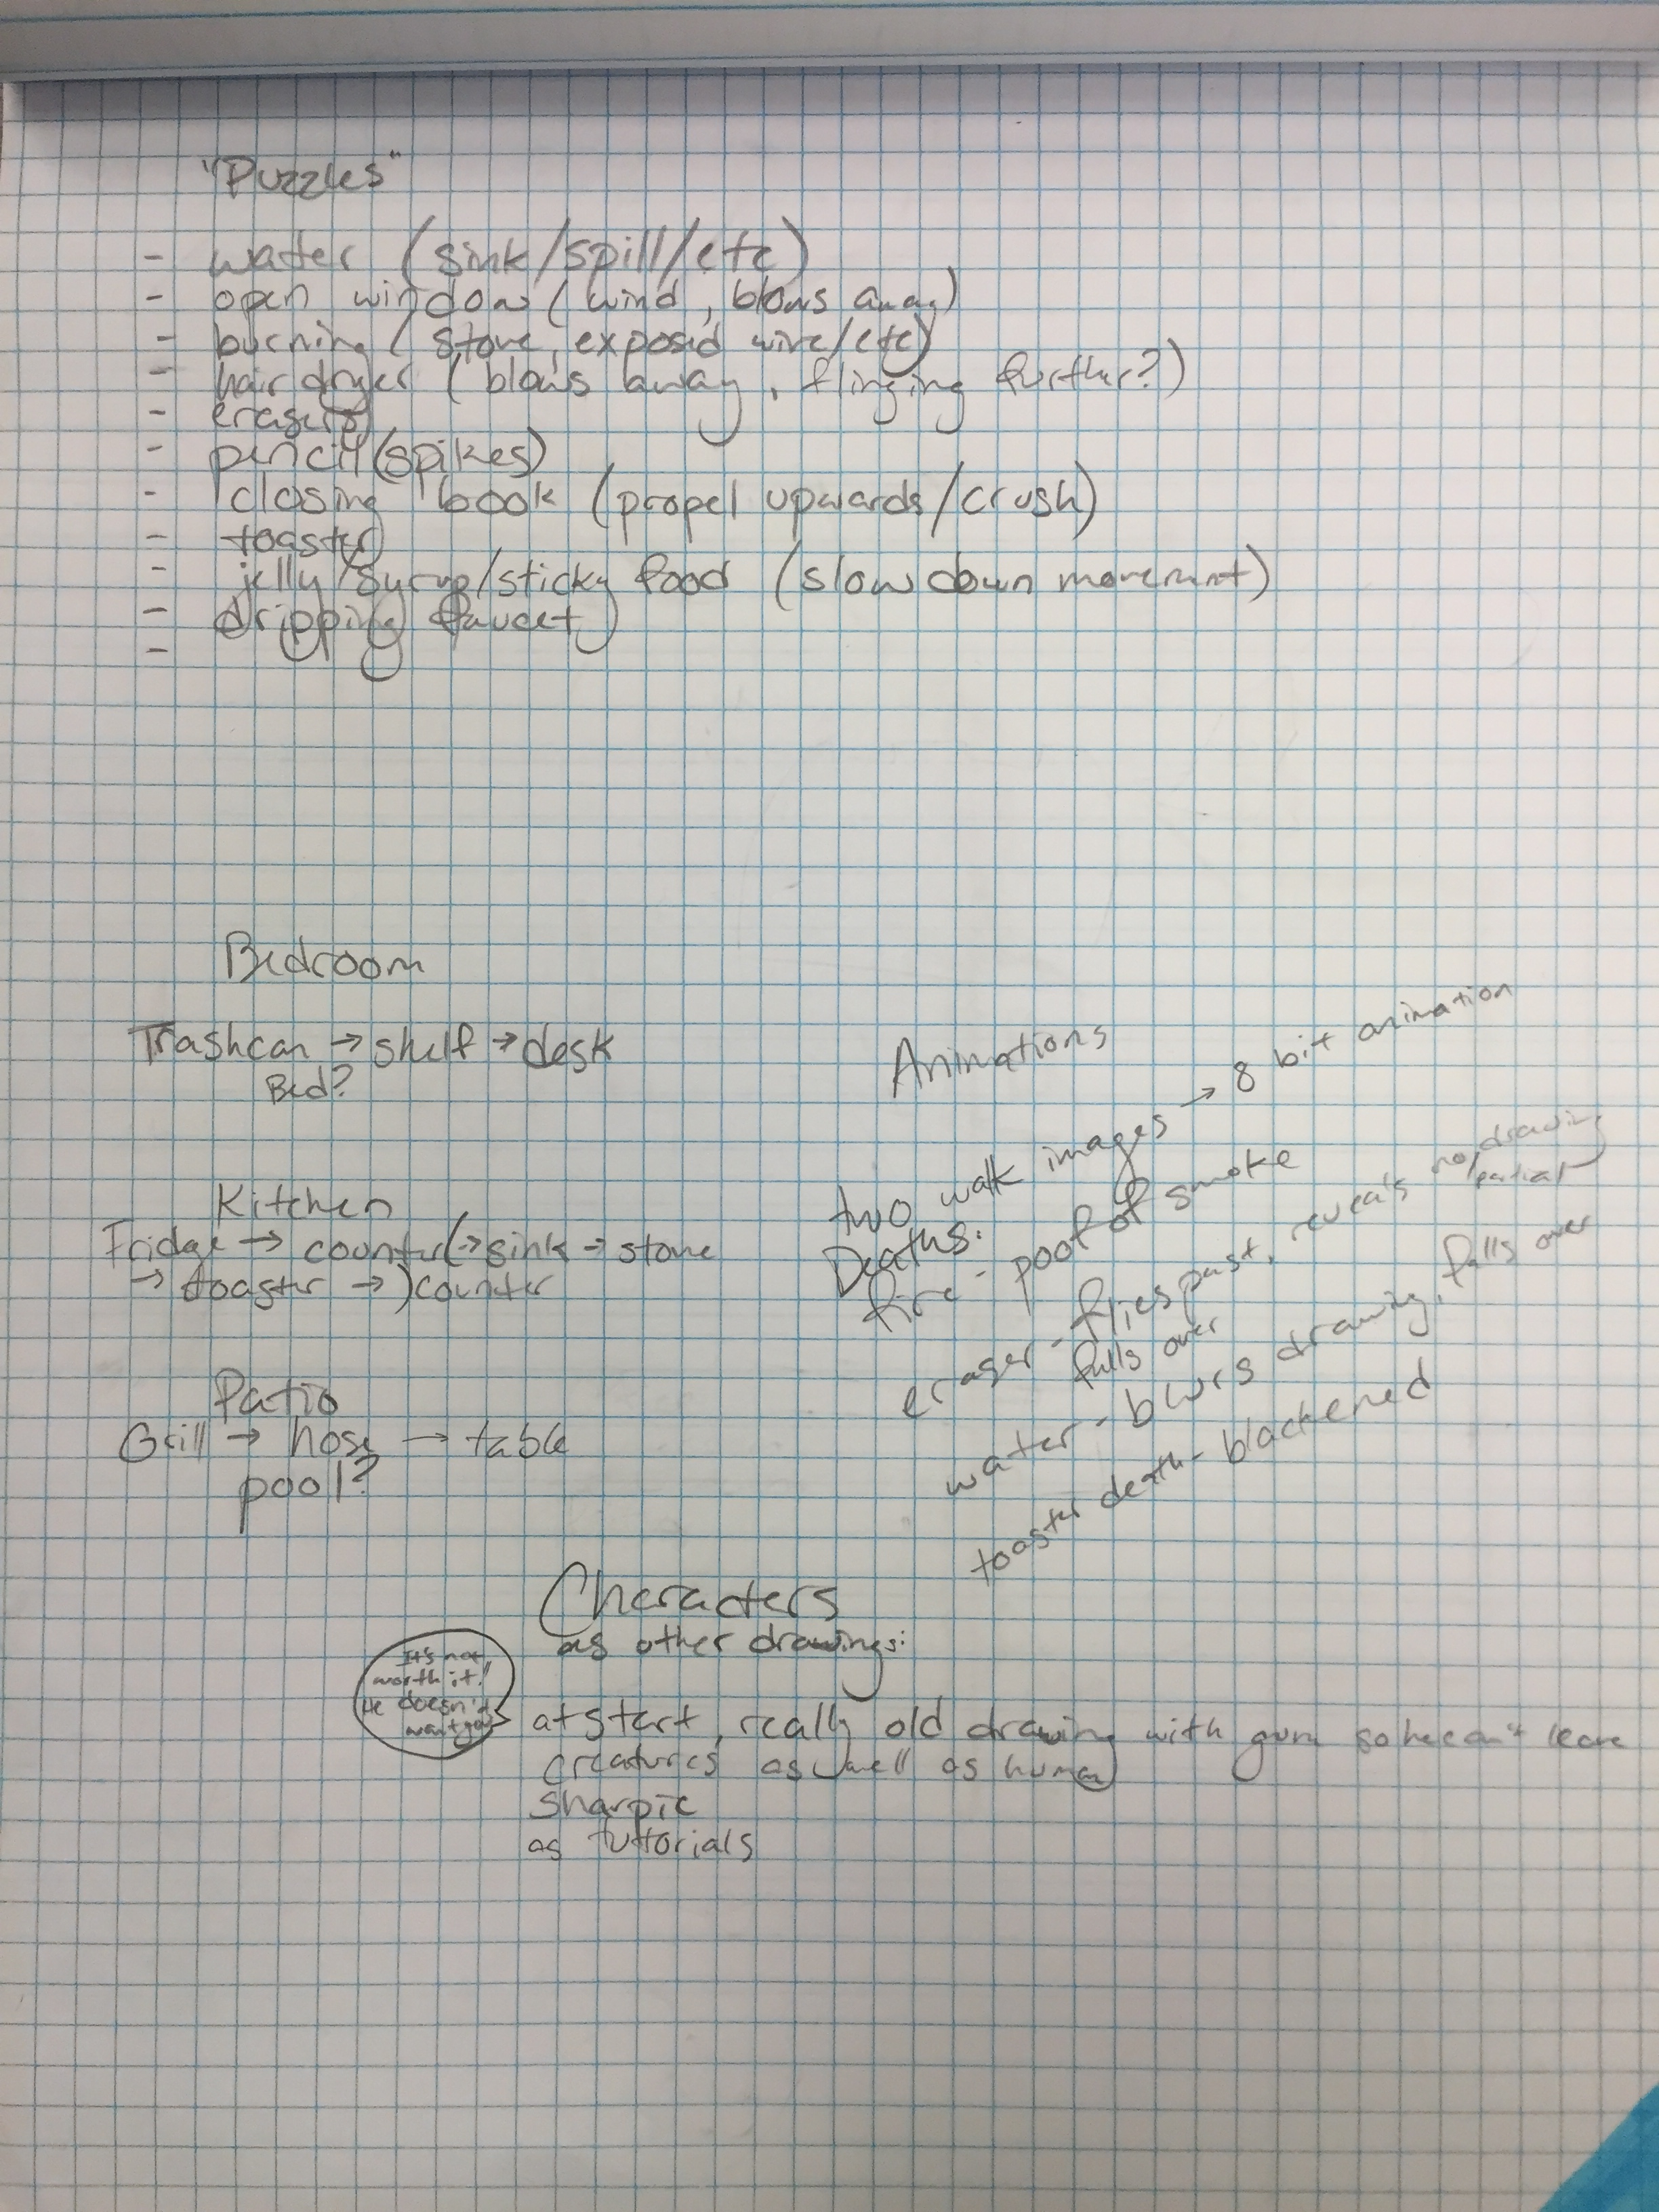 "Puzzles"
- water (sink/spill/etc)
- open window (wind, blows away)
- burning (stove, exposed wire/etc)
- hair dryer (blows away, flinging further?)
- erasers
- pencil (spikes)
- closing book (propel upwards/crush)
- toaster
- jelly/syrup/sticky food (slow down movement)
- dripping faucet
-
Bedroom
Trashcan → shelf → desk
Bed?
Kitchen
Fridge → counter (→ sink → stove
→ toaster → ) counter
Patio
Grill → hose → table
pool?
Animations
two walk images → 8 bit animation
Deaths:
fire - poof of smoke
eraser - flies past, reveals no/partial drawing
falls over
water - blurs drawing, falls over
toaster death - blackened
Characters
as other drawings:
It's not
worth it!
He doesn't
want you
at start, really old drawing with gum so he can't leave
creatures as well as human
Sharpie
as tuttorials